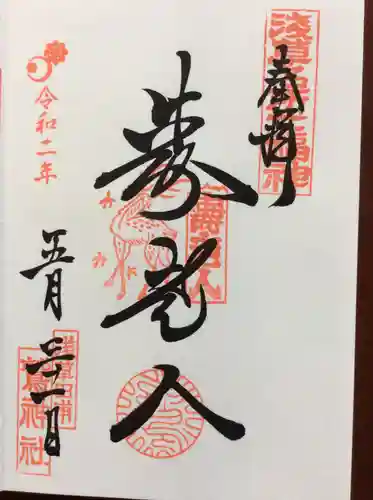 淺草名所七福神
奉拝
壽老人
壽老人
令和二年
五月三十一日
神社